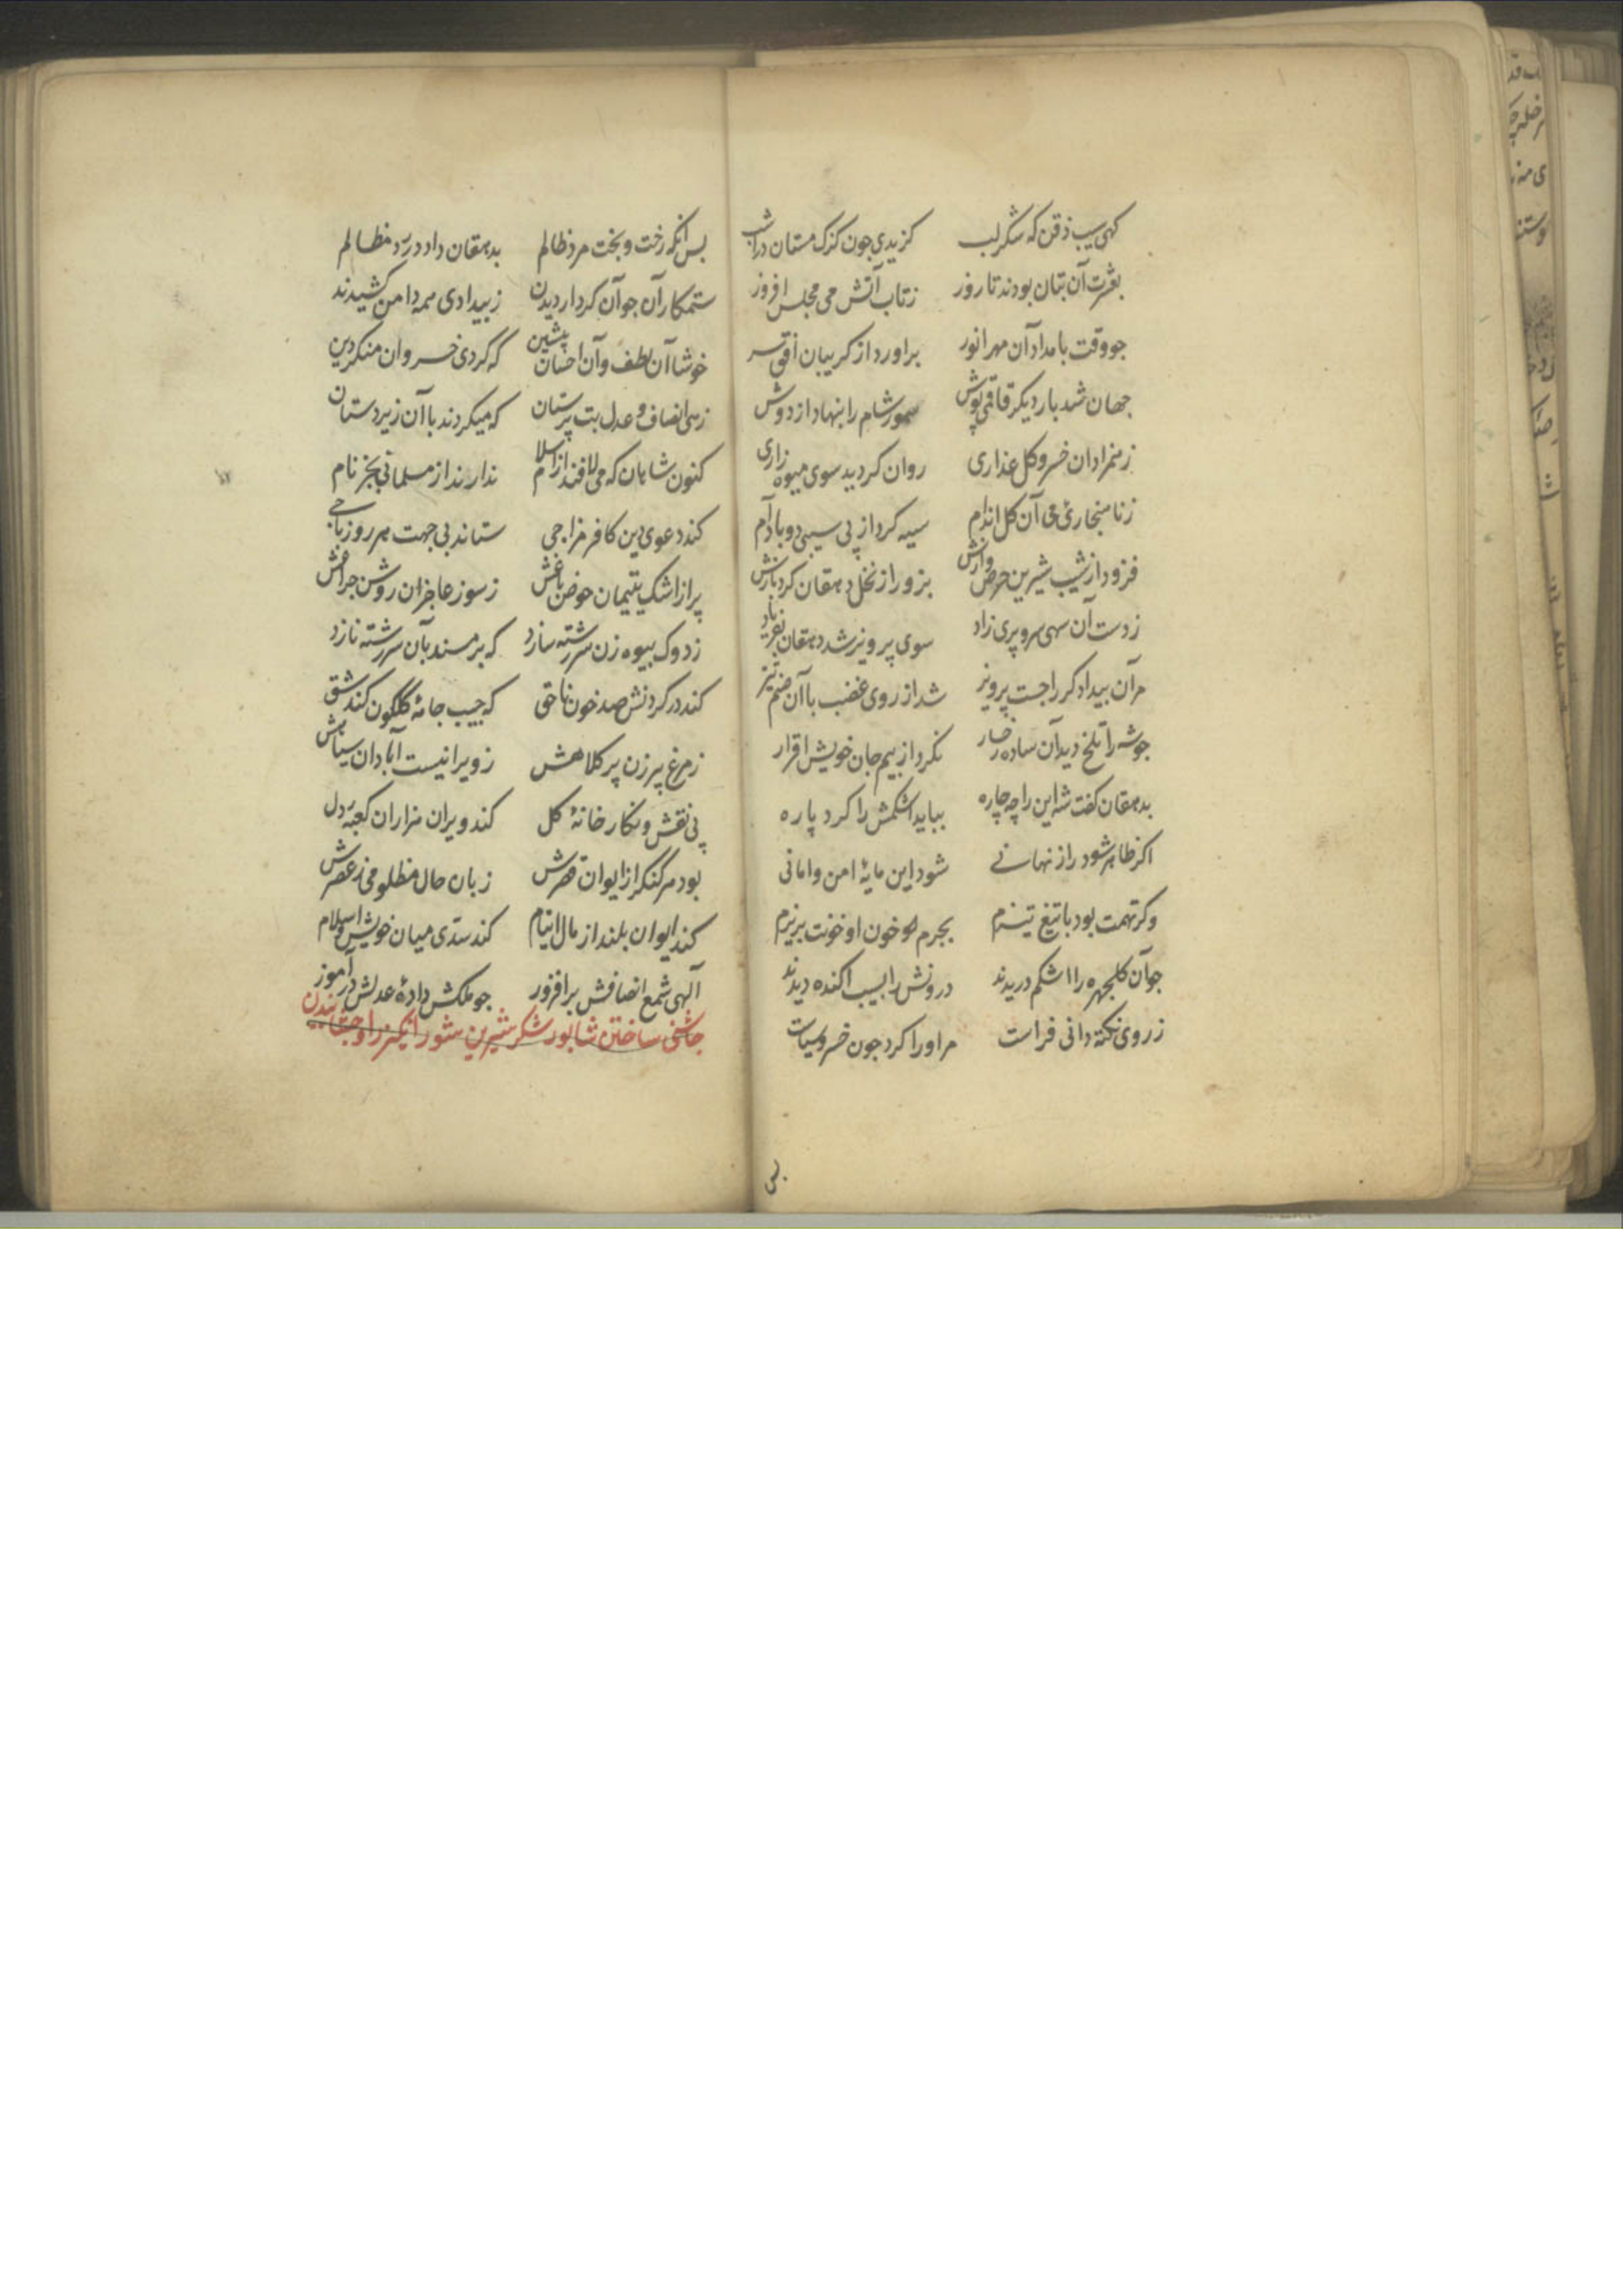 کهی سیب ذقن که شکر لب کزیدی جون کزک مستان دران شب
بعشرت آن بتان بودند تا روز زتاب آتش می مجلس افروز
جو وقت بامداد آن مهر انور براورد از کریبان افق سر
جهان شد بار دیکر قاقمی پوش سمور شام را بنهاد از دوش
زمنزادان خسرو کل عذاری روان کردید سوی میوه زاری
زنا هنجارئ می آن کل اندام سیه کرد از پی سیبی دو بادام
فزود از سیب شیرین حرص وارش بزور از نخل دهقان کرد بارش
زدست آن سهی سرو پری زاد سوی پرویز شد دهقان بفریاد
مر آن بیدادکر را جست پرویز شد از روی غضب با آن صنم تیز
جو شه را تلخ دید آن ساده رخسار نکرد از بیم جان خویش اقرار
بدهقان کفت شه این را چه چاره بباید اشکمش را کرد پاره
اکر ظاهر شود راز نهانے شود این مایهٔ امن و امانی
وکر تهمت بود با تیغ تیزم بجرم خون او خونت بریزم
جو آن کلجهره را اشکم دریدند درونش را بسیب اکنده دیدند
ز روی نکته دانی فراست مر او را کرد جون خسرو سیاست
بس آنکه رخت و بخت مرد ظالم بدهقان داد در رد مظالم
ستمکاران جو آن کردار دیدن زبیدادی همه دامن کشیدند
خوشا آن لطف و آن احسان پیشین که کردی خسروان منکر دین
زهی انصاف و عدل بت پرستان که میکردند با آن زیردستان
کنون شاهان که می لافند از اسلام ندارند از مسلمانی بجز نام
کند دعوی دین کافر مزاجی ستاند بی جهت هر روز باجی
پر از اشک یتیمان حوض باغش زسوز عاجزان روشن جراغش
زدوک بیوه زن سررشته سازد که بر مسند بآن سررشته نازد
کند در کردنش صد خون ناحق که جیب جامهٔ کلکون کند شق
زمرغ پیرزن پر کلاهش زویرانیست آبادان
پی نقش و نکار خانهٔ کل کند ویران هزاران کعبهٔ دل
بود هر کنکر از ایوان قصرش زبان حال مظلومی زعصرش
کند ایوان بلند از مال ایتام کند سدی میان خویش و اسلام
آلهی شمع انصافش برافروز جو ملکش دادهٔ عدلش درآموز
جاشنی ساختن شابور شکر شیرین شور انکیز را و